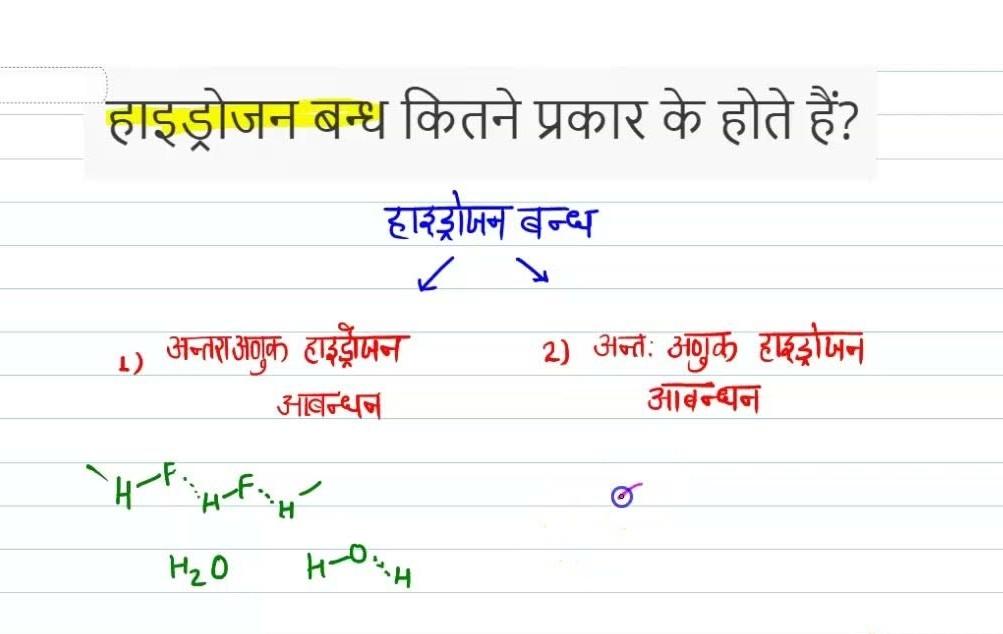 हाइड्रोजन बन्ध कितने प्रकार के होते हैं?
हाइड्रोजन बन्ध
1) अन्तराअणुक हाइड्रोजन आबन्धन
2) अन्त: अणुक हाइड्रोजन आबन्धन
H-F...H-F...H
H2O H-O...H